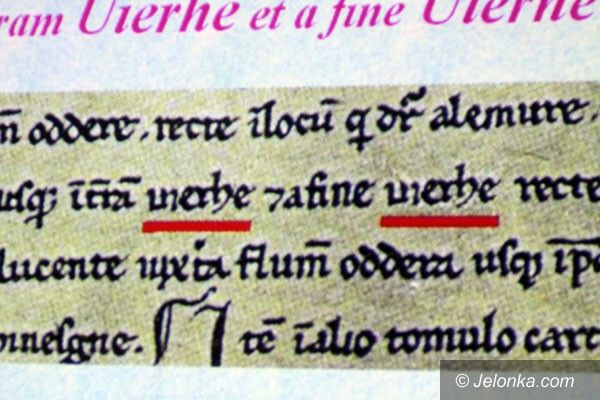 ram Uierhe et a fine Uierhe
m̄ oddere. recte īlocū q̄ dr̄ alemure.
usq; īt̄rā uierhe ⁊afine uierhe recte
lucente iuxta flum̄ oddera usq; ip̄
Item īalio tomulo
© Jelonka.com